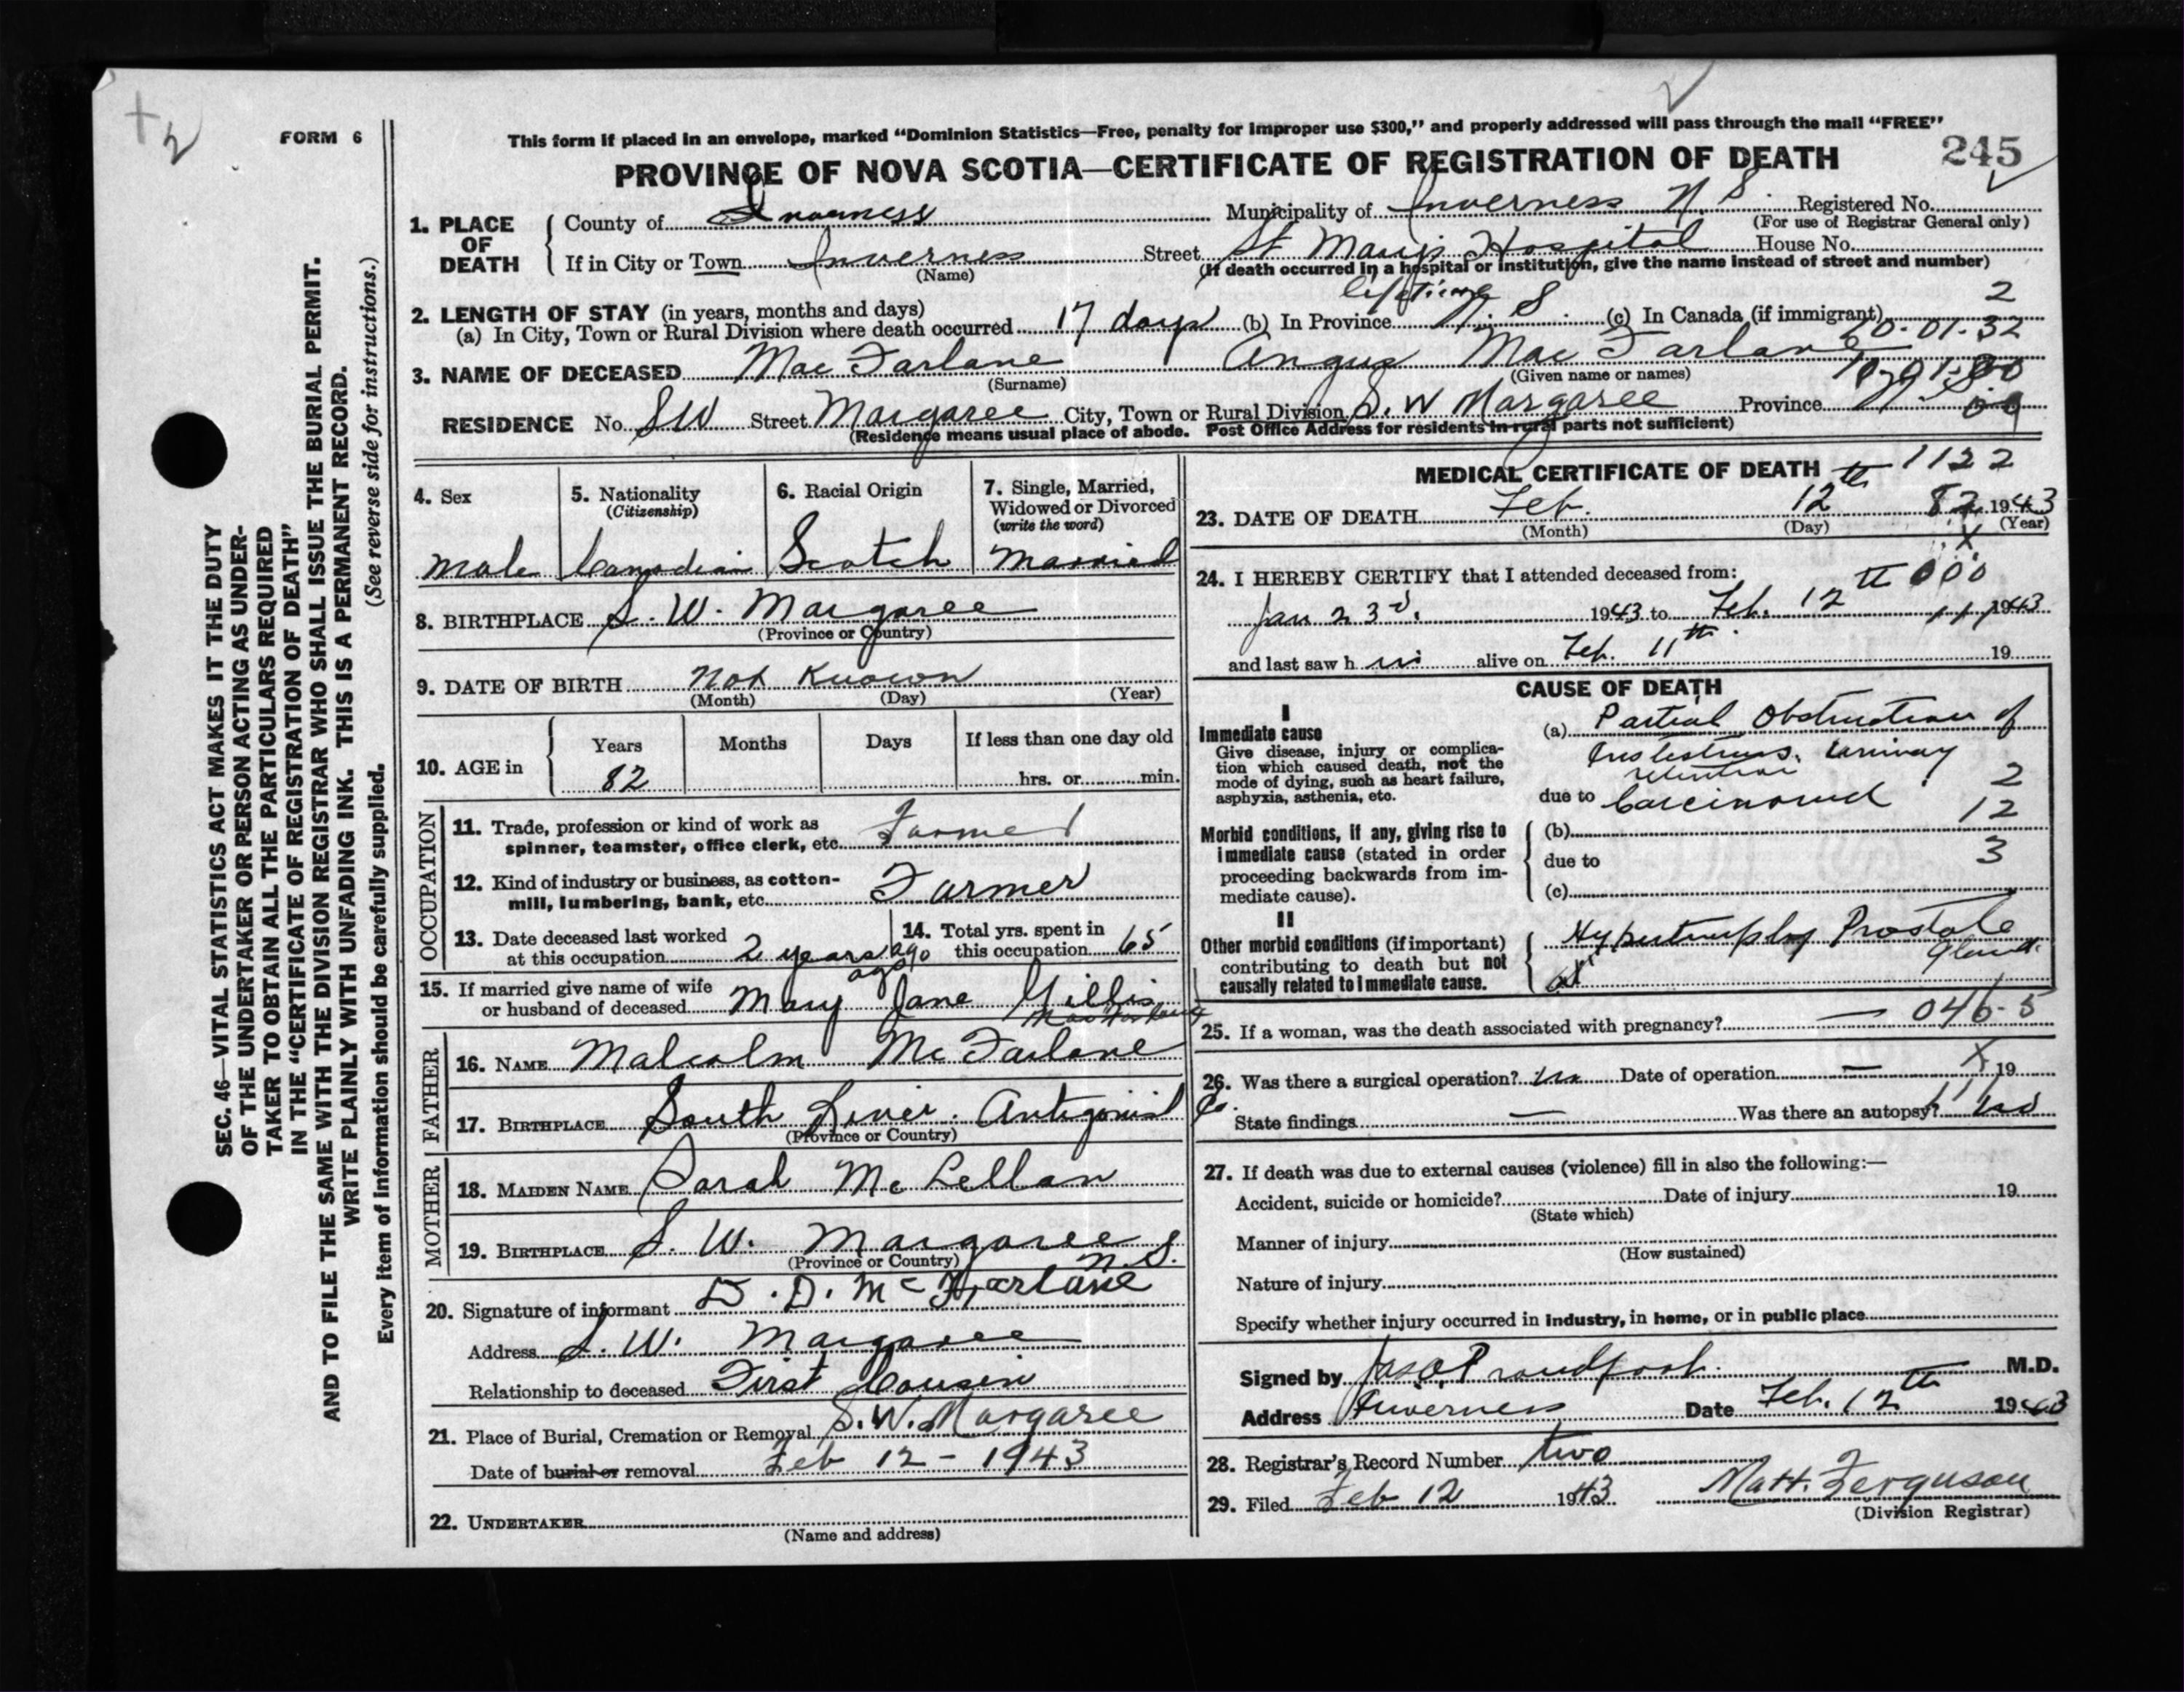 FORM 6
This form if placed in an envelope, marked “Dominion Statistics—Free, penalty for improper use $300,” and properly addressed will pass through the mail “FREE”
PROVINCE OF NOVA SCOTIA—CERTIFICATE OF REGISTRATION OF DEATH
245
1. PLACE OF DEATH
County of Inverness Municipality of Inverness N. S. Registered No.
(For use of Registrar General only)
If in City or Town Inverness Street St Mary's Hospital House No.
(Name) (If death occurred in a hospital or institution, give the name instead of street and number)
2. LENGTH OF STAY (in years, months and days)
lifetime 2
(a) In City, Town or Rural Division where death occurred 17 days (b) In Province N. S. (c) In Canada (if immigrant)
20-01-32
3. NAME OF DECEASED Mac Farlane Angus Mac Farlane
(Surname) (Given name or names)
RESIDENCE No. SW Street Margaree City, Town or Rural Division S. W Margaree Province N. S.
(Residence means usual place of abode. Post Office Address for residents in rural parts not sufficient)
4. Sex 5. Nationality (Citizenship) 6. Racial Origin 7. Single, Married, Widowed or Divorced (write the word)
Male Canadian Scotch Married
8. BIRTHPLACE S. W. Margaree
(Province or Country)
9. DATE OF BIRTH Not Known
(Month) (Day) (Year)
10. AGE in Years Months Days If less than one day old
82 hrs. or min.
OCCUPATION
11. Trade, profession or kind of work as
spinner, teamster, office clerk, etc. Farmer
12. Kind of industry or business, as cotton-
mill, lumbering, bank, etc. Farmer
13. Date deceased last worked
at this occupation 2 years ago
ago
14. Total yrs. spent in
this occupation 65
15. If married give name of wife
or husband of deceased Mary Jane Gillis
FATHER
16. NAME Malcolm Mc Farlane
17. BIRTHPLACE South River. Antigonish Co.
(Province or Country)
MOTHER
18. MAIDEN NAME Sarah Mc Lellan
19. BIRTHPLACE S. W. Margaree
(Province or Country) N. S.
20. Signature of informant D. D. McFarlane
Address S. W. Margaree
Relationship to deceased First Cousin
21. Place of Burial, Cremation or Removal S. W. Margaree
Date of burial or removal Feb 12 - 1943
22. UNDERTAKER
(Name and address)
MEDICAL CERTIFICATE OF DEATH
1122
23. DATE OF DEATH Feb. 12th 82 1943
(Month) (Day) (Year)
24. I HEREBY CERTIFY that I attended deceased from:
Jan 23rd. 1943 to Feb. 12th 1943
and last saw h im alive on Feb. 11th 19
CAUSE OF DEATH
I
Immediate cause
Give disease, injury or complica-
tion which caused death, not the
mode of dying, such as heart failure,
asphyxia, asthenia, etc.
(a) Partial Obstruction of
Intestines. Urinary
retention
due to Carcinoma
2
12
3
Morbid conditions, if any, giving rise to
immediate cause (stated in order
proceeding backwards from im-
mediate cause).
(b)
due to
(c)
II
Other morbid conditions (if important)
contributing to death but not
causally related to immediate cause.
Hypertrophy Prostate
Gland
25. If a woman, was the death associated with pregnancy? — 046-5
26. Was there a surgical operation? no Date of operation — 19
State findings — Was there an autopsy? no
27. If death was due to external causes (violence) fill in also the following:—
Accident, suicide or homicide? Date of injury 19
(State which)
Manner of injury
(How sustained)
Nature of injury
Specify whether injury occurred in industry, in home, or in public place
Signed by Jas. A. Proudfoot. M.D.
Address Inverness Date Feb. 12th 1943
28. Registrar's Record Number two
29. Filed Feb 12 1943 Matt. Ferguson
(Division Registrar)
SEC. 46—VITAL STATISTICS ACT MAKES IT THE DUTY
OF THE UNDERTAKER OR PERSON ACTING AS UNDER-
TAKER TO OBTAIN ALL THE PARTICULARS REQUIRED
IN THE “CERTIFICATE OF REGISTRATION OF DEATH”
AND TO FILE THE SAME WITH THE DIVISION REGISTRAR WHO SHALL ISSUE THE BURIAL PERMIT.
WRITE PLAINLY WITH UNFADING INK. THIS IS A PERMANENT RECORD.
Every item of information should be carefully supplied. (See reverse side for instructions.)